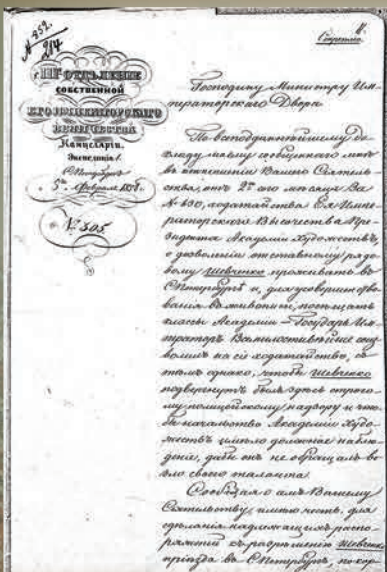 № 852.
214
II.
Секретно.
III ОТДѢЛЕНІЕ
СОБСТВЕННОЙ
ЕГО ИМПЕРАТОРСКАГО
ВЕЛИЧЕСТВА
Канцеляріи.
Экспедиція 1.
С.Петербургъ
5го Февраля 1858 г.
№ 505
Господину Министру Им-
ператорскаго Двора
По всеподданнѣйшему до-
кладу моему сообщеннаго мнѣ
въ отношеніи Вашего Сіятель-
ства, отъ 2го сего мѣсяца за
№ 430, ходатайства Ея Импе-
раторскаго Высочества Пре-
зидента Академіи Художествъ,
о дозволеніи отставному рядо-
вому Шевченко проживать въ
С.Петербургѣ и, для усовершенство-
ванія въ живописи, посѣщать
классы Академіи – Государь Им-
ператоръ Всемилостивѣйше соиз-
волилъ на сіе ходатайство, съ
тѣмъ однако, чтобы Шевченко
подвергнутъ былъ здѣсь строго-
му полицейскому надзору и что-
бы начальство Академіи Худо-
жествъ имѣло должное наблю-
деніе, дабы онъ не обращалъ во
зло своего таланта.
Сообщая о семъ Вашему
Сіятельству, имѣю честь, для
сдѣланія надлежащихъ распо-
ряженій къ разрѣшенію Шевченкѣ
пріѣзда въ С.Петербургъ, покор-